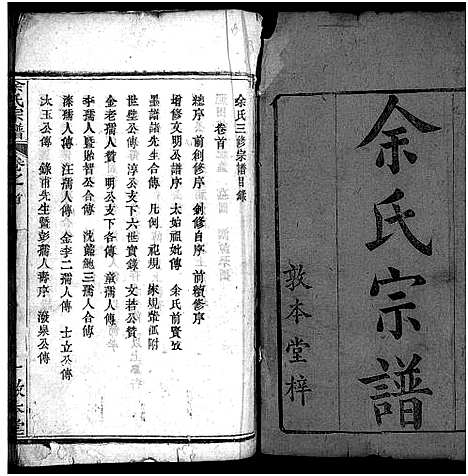 余氏宗譜
敦本堂梓
余氏三修宗譜目錄
卷首
總序 前創修序 創修自序 前續修序
增修文明公譜序 太始祖妣傳 余氏前賢攷
墨譜諸先生合傳 凡例 祀規 家規 塋派附
世璧公傳 淳公支下六世實錄 文若公贊
金老孺人贊 明公支下各傳 童孺人傳
李孺人暨貽智公合傳 沈戴鮑三孺人合傳
漆孺人傳 汪孺人傳 金李二孺人傳 士立公傳
汰玉公傳 錄甫先生暨彭孺人壽序 潑泉公傳
余氏宗譜
卷之首
一 敦本堂